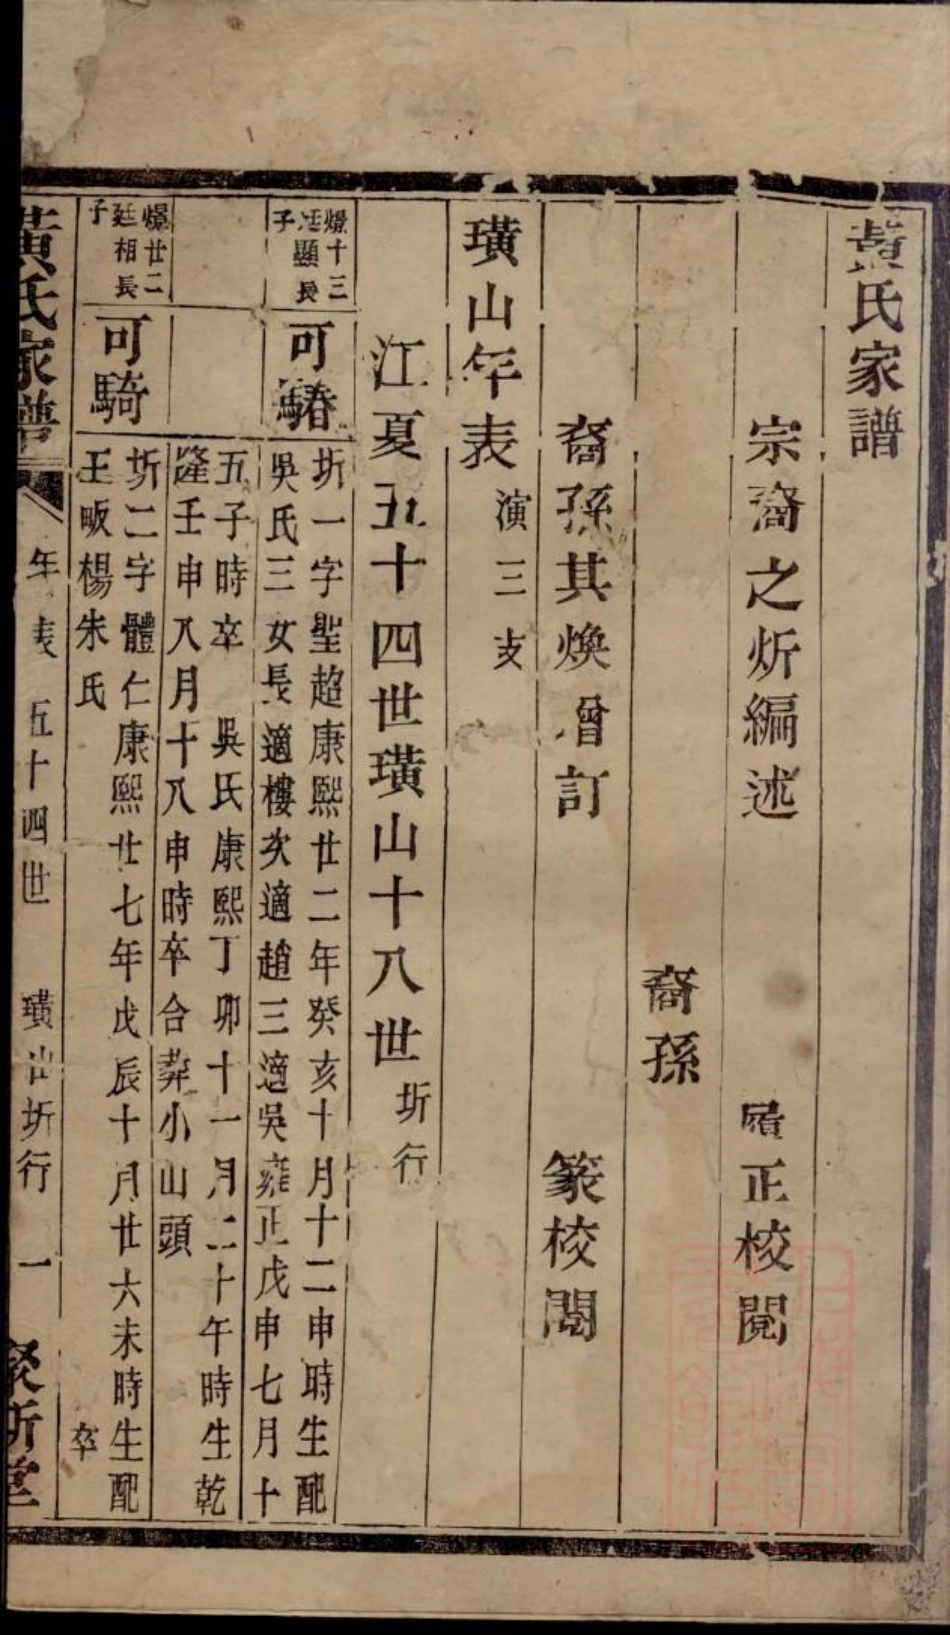 黃氏家譜
宗裔之炘編述 履正校閱
裔孫
裔孫其煥增訂 篆校閱
璜山年表 演三支
江夏五十四世璜山十八世 圻行
爆十三
廷顯長
子
可騎
圻一字聖超康熙廿二年癸亥十月十二申時生配
吳氏三女長適樓次適趙三適吳雍正戊申七月十
五子時卒 吳氏康熙丁卯十一月二十午時生乾
隆壬申八月十八申時卒合葬小山頭
爆廿二
廷相長
子
可騎
圻二字體仁康熙廿七年戊辰十月廿六未時生配
王畈楊朱氏 卒
黃氏家譜 年表 五十四世 璜山圻行 一 聚斯堂